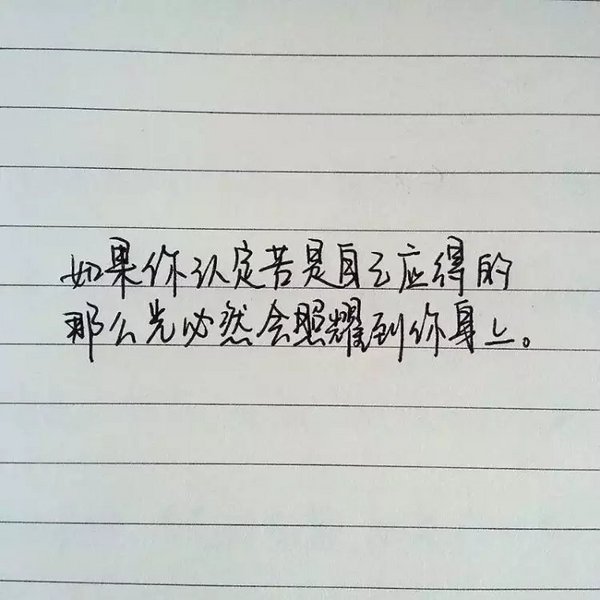 如果你认定苦是自己应得的
那么光必然会照耀到你身上。